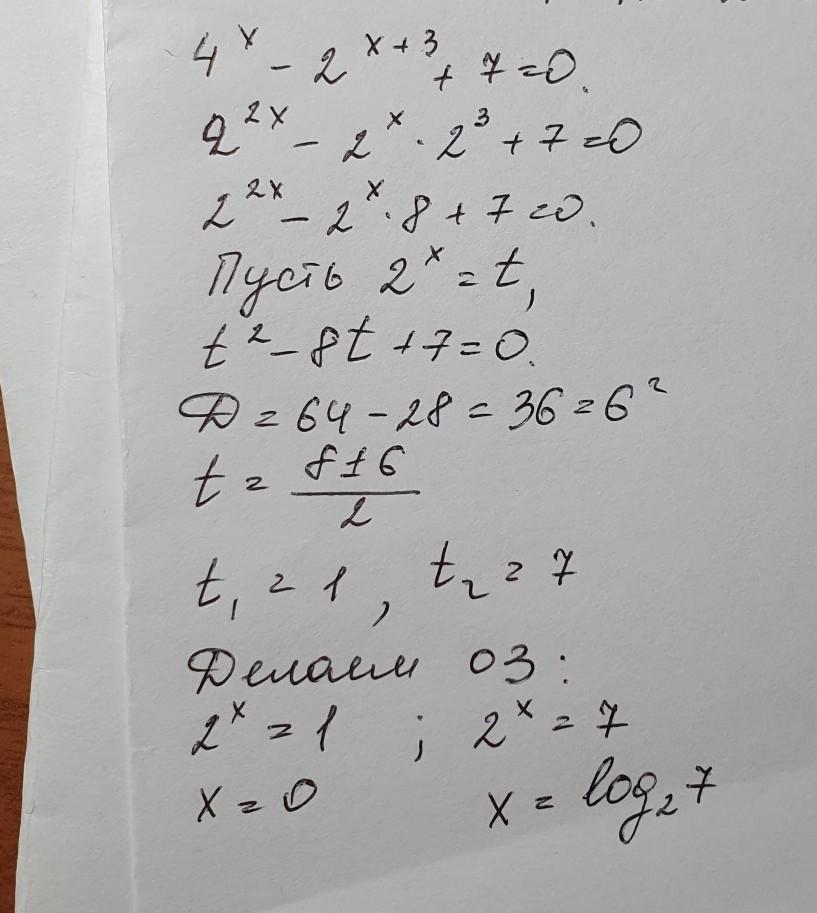 4^x - 2^{x+3} + 7 = 0.
2^{2x} - 2^x · 2^3 + 7 = 0
2^{2x} - 2^x · 8 + 7 = 0.
Пусть 2^x = t,
t^2 - 8t + 7 = 0.
D = 64 - 28 = 36 = 6^2
t = \frac{8 ± 6}{2}
t_1 = 1, t_2 = 7
Делаем ОЗ:
2^x = 1 ; 2^x = 7
x = 0 x = log_2 7